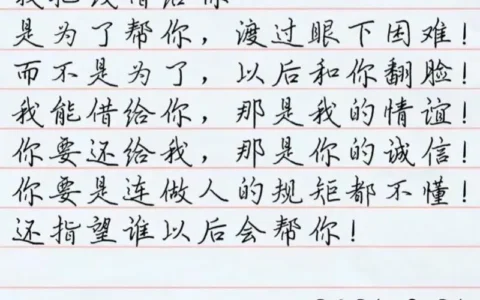 我把钱借给你
是为了帮你，渡过眼下困难！
而不是为了，以后和你翻脸！
我能借给你，那是我的情谊！
你要还给我，那是你的诚信！
你要是连做人的规矩都不懂！
还指望谁以后会帮你！